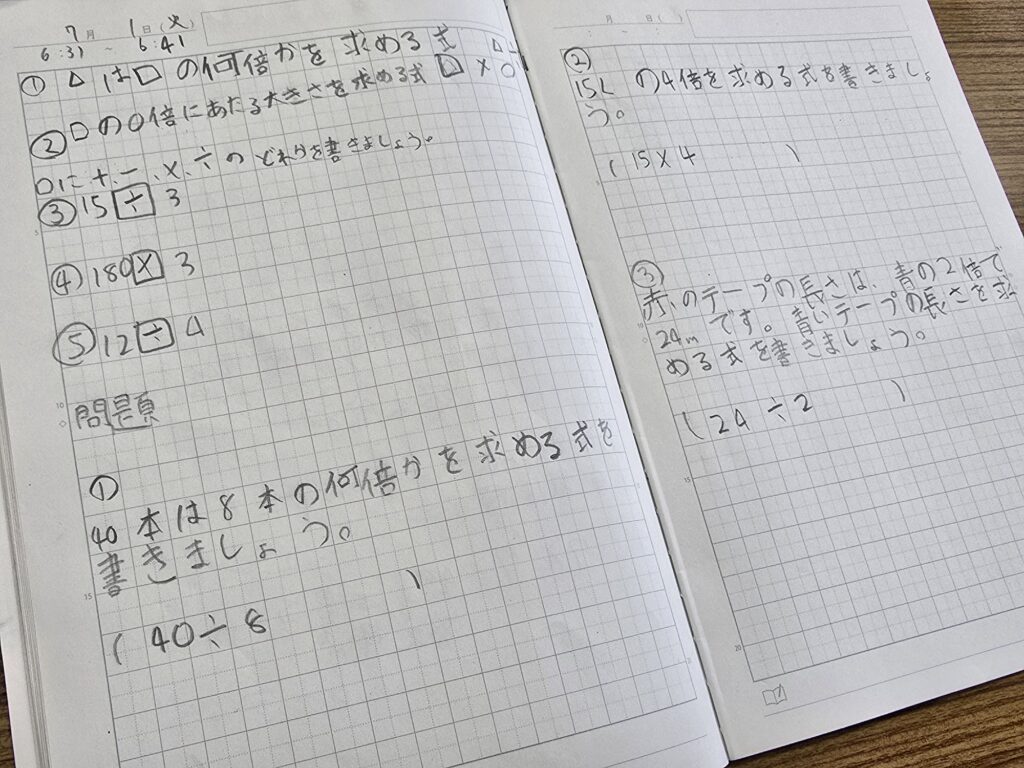 7月 1日(火)
6:31 ~ 6:41
① △は□の何倍かを求める式 △÷
②□の○倍にあたる大きさを求める式 □×○
○に+、-、×、÷のどれかを書きましょう。
③15÷3
④180×3
⑤12÷4
問題
①
40本は8本の何倍かを求める式を
書きましょう。
(40÷8)
月 日( )
②
15Lの4倍を求める式を書きましょ
う。
(15×4)
③
赤いのテープの長さは、青の2倍で
24mです。青いテープの長さを求
める式を書きましょう。
(24÷2)
5
10
15
10
15
20